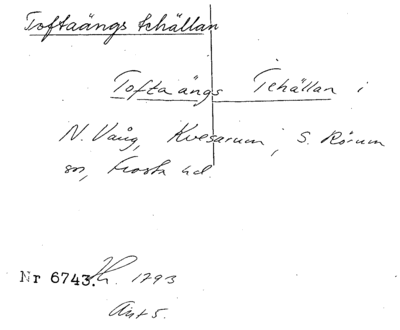 Toftaängs tehällan
Tofta ängs Tehällan i
N. Vång, Kvesarum, S. Rörum
sn, Frosta hd.
Nr 6743. 1293
Avt 5.